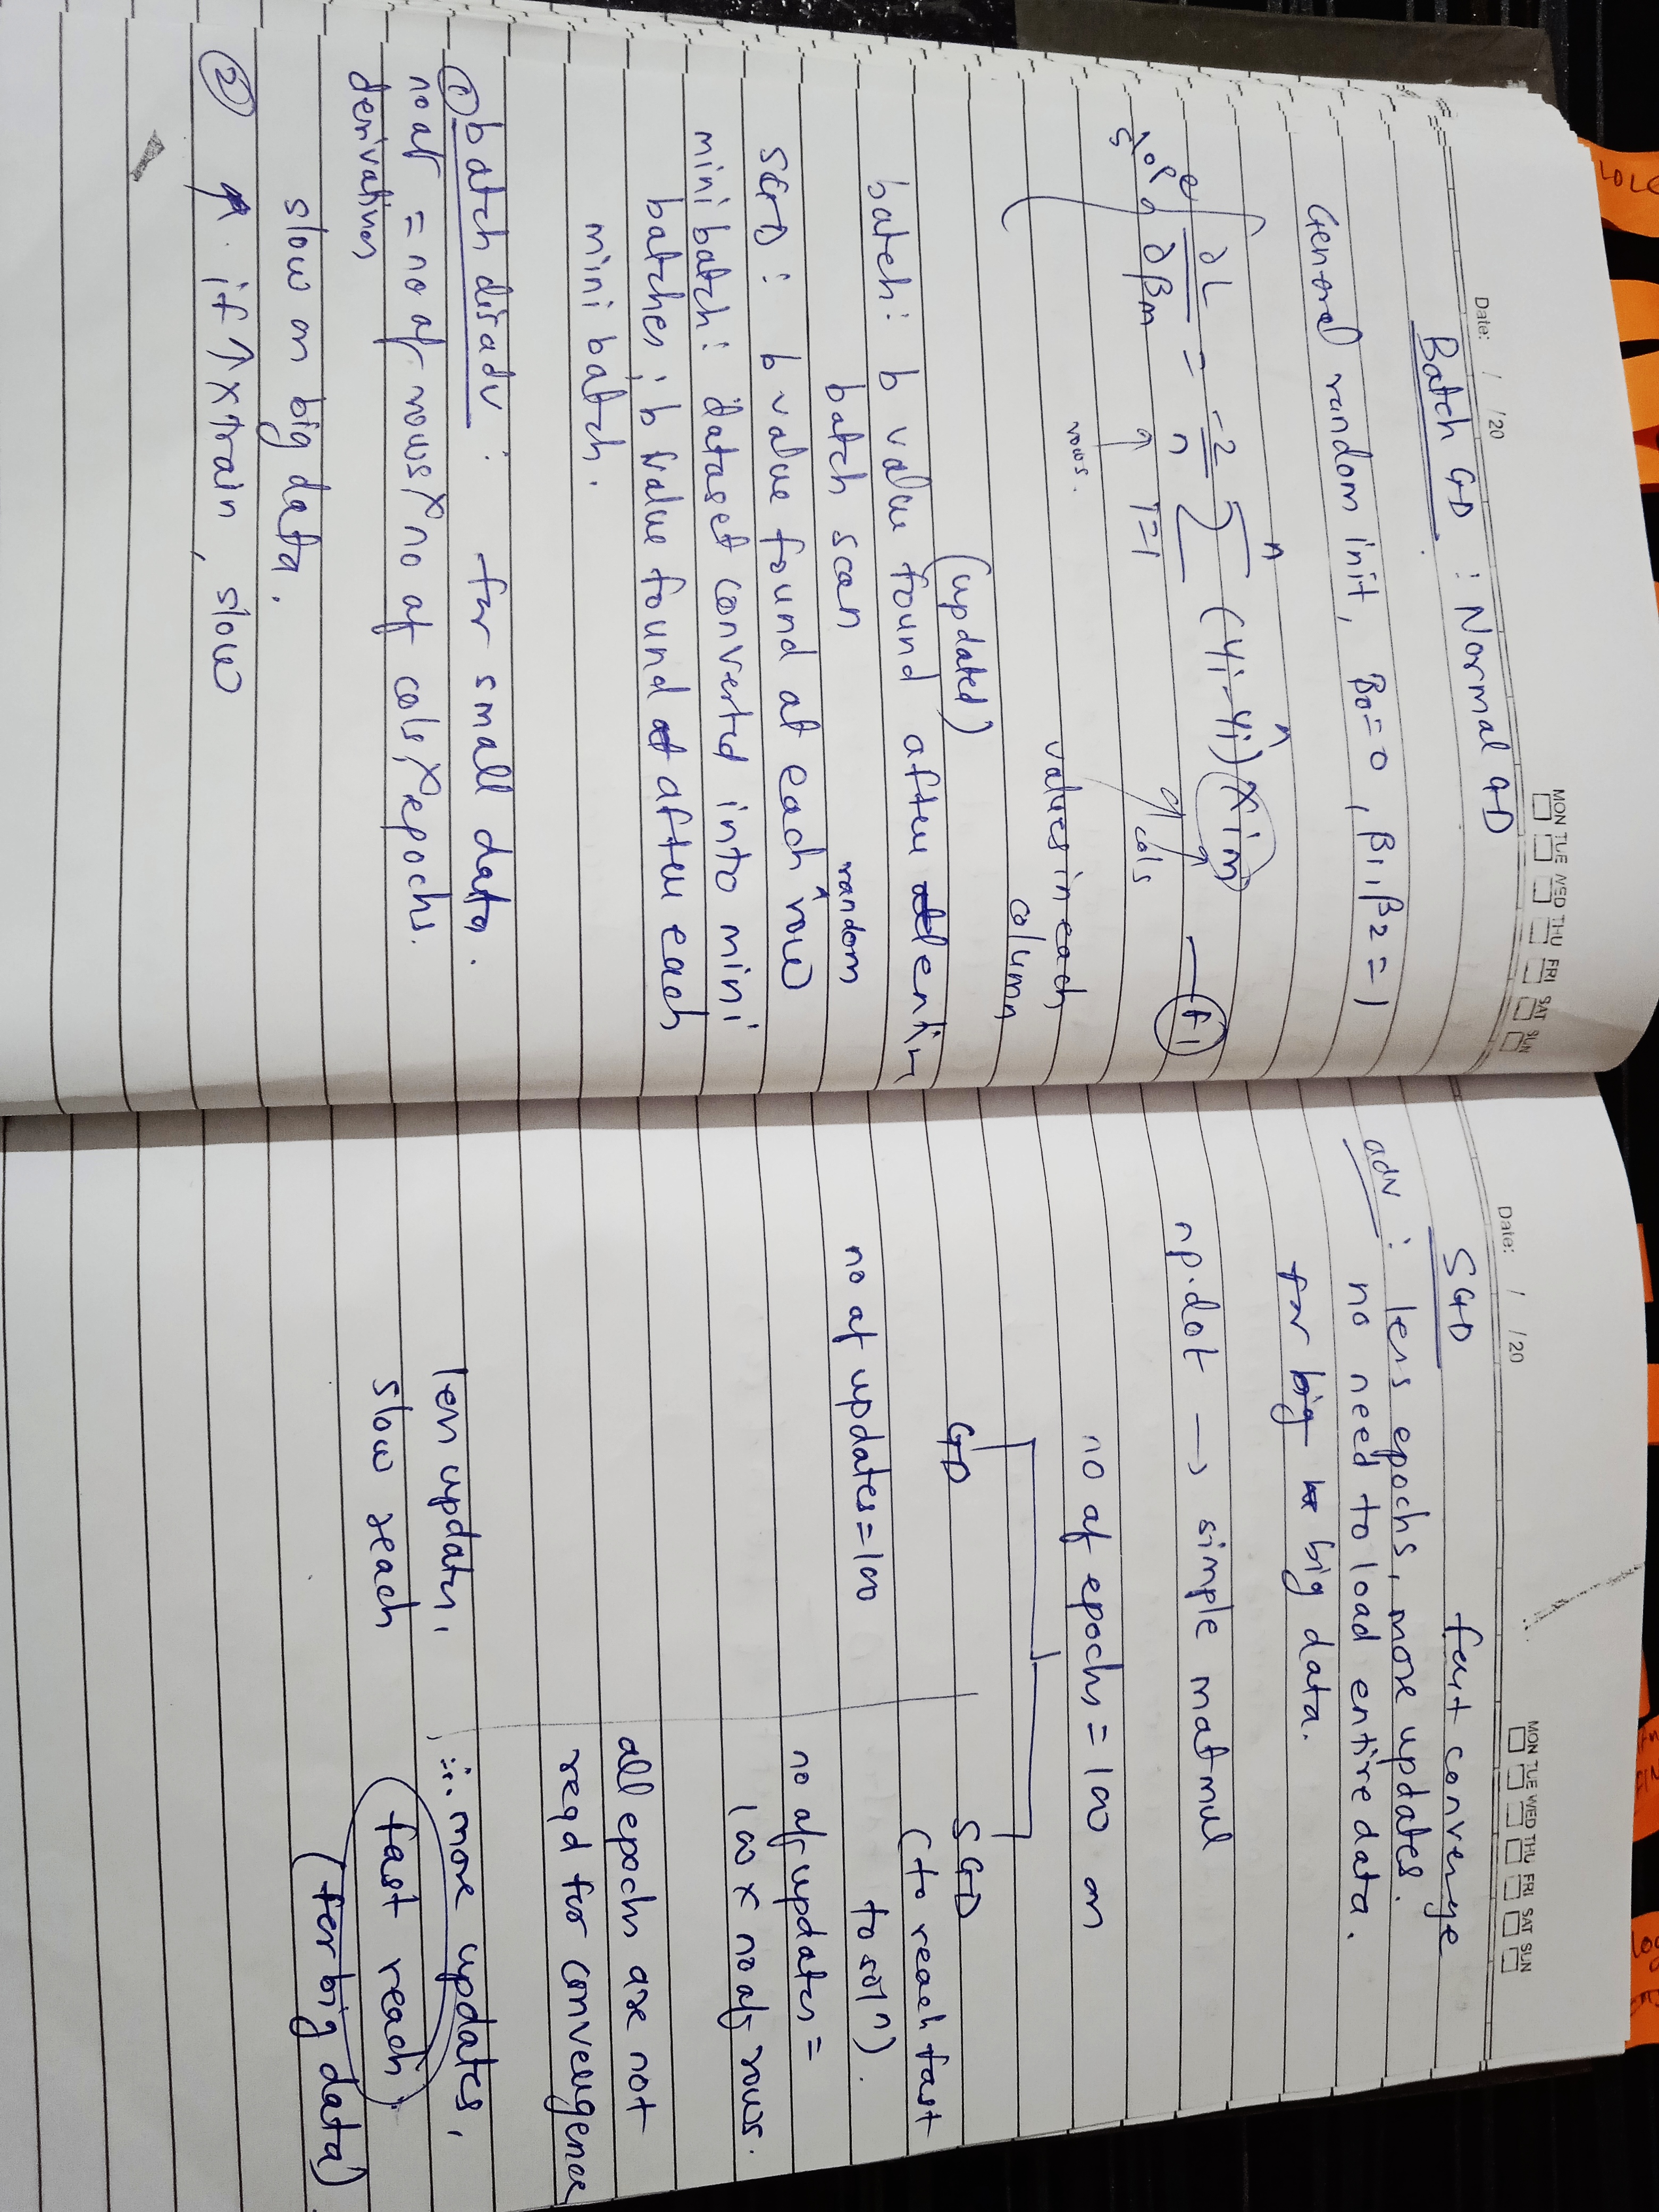 Date: / /20
MON TUE WED THU FRI SAT SUN
Batch GD : Normal GD
General random init, B0=0, β1,β2=1
∂L/∂βm = -2/n Σ (yi-ŷi) xim — f1
n
i=1
rows.
cols
values in each
column
(updated)
batch: b value found after entire
batch scan
random
SGD: b value found at each ^ row
mini batch: dataset converted into mini
batches; b value found after each
mini batch.
① batch disadv: for small data.
no of = no of rows × no of cols × epochs.
derivatives
slow on big data.
② if ↑ xtrain, slow
Date: / /20
MON TUE WED THU FRI SAT SUN
SGD fast converge
adv: less epochs, more updates.
no need to load entire data.
for big data.
np.dot → simple matmul
no of epochs = 100 on
GD
SGD
(to reach fast
to soln).
no of updates=100
no of updates =
100 × no of rows.
all epochs are not
reqd for convergence
less updates,
slow reach
∴ more updates,
fast reach
(for big data)